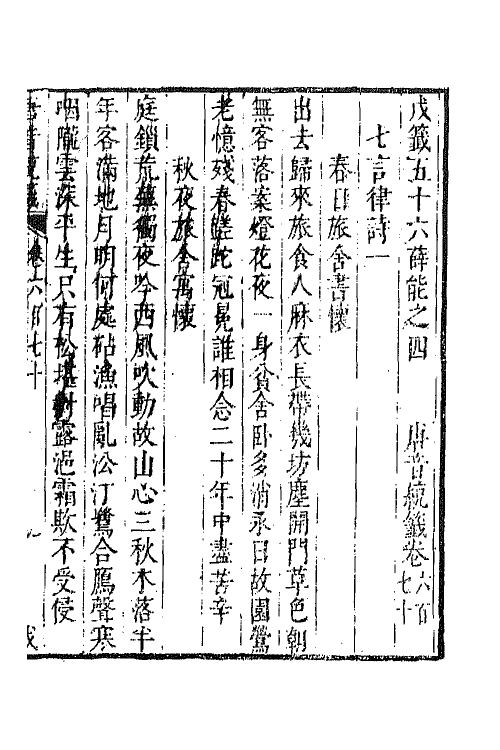 戊籤五十六薛能之四　唐音統籤卷六百七十
七言律詩一
春日旅舍書懷
出去歸來旅食人麻衣長帶幾坊塵開門草色朝
無客落案燈花夜一身貧舍臥多消永日故園鶯
老憶殘春蹉跎冠冕誰相念二十年中盡苦辛
秋夜旅舍寓懷
庭鎖荒蕪獨夜吟西風吹動故山心三秋木落半
年客滿地月明何處砧漁唱亂沿汀鷺合鴈聲寒
咽隴雲深平生只有松堪對露浥霜欺不受侵
唐音統籤　卷六百七十　九　戊